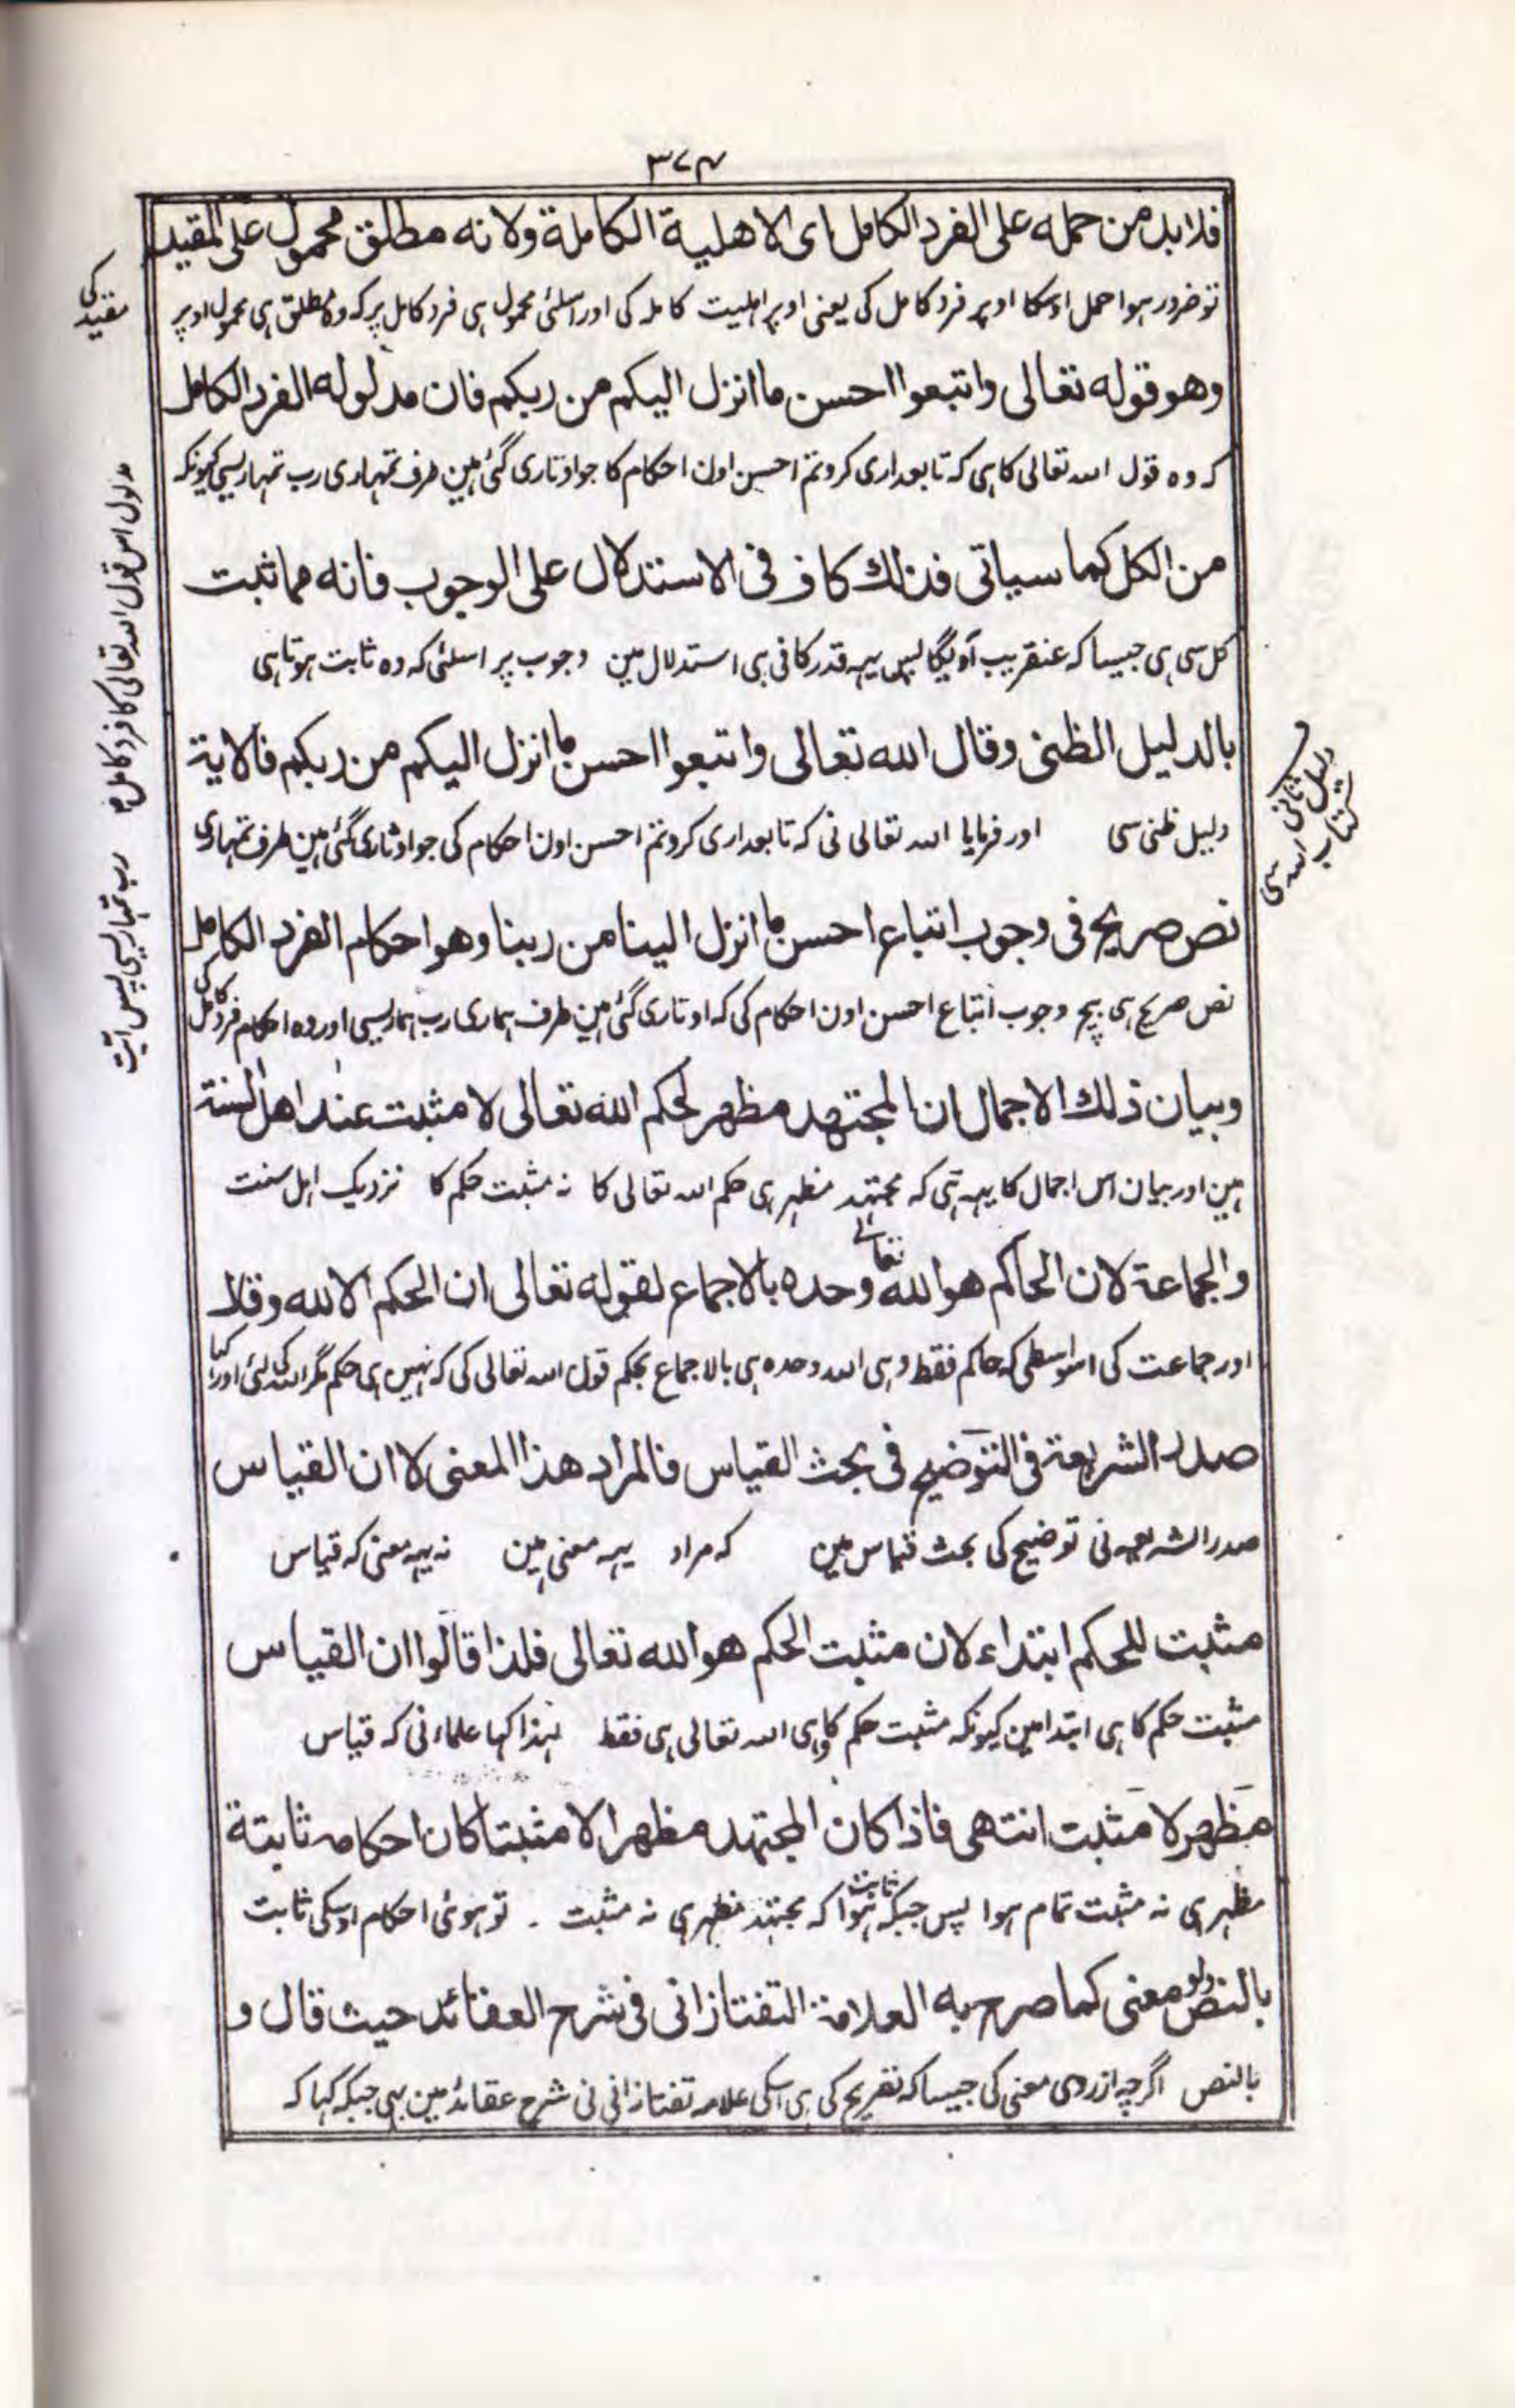 ٣٧٤
فلابد من حمله على الفرد الكامل اى الاهلية الكاملة ولانه مطلق محمول على المقيد
تو ضرور ہوا حمل اوسکا اوپر فرد کامل کی یعنی اوپر اہلیت کاملہ کی اور اسلئی محمول ہی فرد کامل پر کہ وہ مطلق ہی محمول اوپر
مقید کی
وهو قوله تعالى واتبعوا احسن ما انزل اليكم من ربكم فان مدلوله الفرد الكامل
کہ وہ قول اللہ تعالی کا ہی کہ تابعداری کرو تم احسن اون احکام کا جو اوتاری گئی ہین طرف تمہاری رب تمہاریسی کیونکہ
مدلول اس قول اللہ تعالی کا فرد کامل ہی
من الكل كما سياتى فذلك كاف فى الاستدلال على الوجوب فانه مما ثبت
کل سی ہی جیسا کہ عنقریب آویگا پس یہہ قدر کافی ہی استدلال مین وجوب پر اسلئی کہ وہ ثابت ہوتا ہی
بالدليل الظنى وقال الله تعالى واتبعوا احسن ما انزل اليكم من ربكم فالاية
دلیل ثانی کتاب اللہ سی
دلیل ظنی سی اور فرمایا اللہ تعالی نی کہ تابعداری کرو تم احسن اون احکام کی جو اوتاری گئی ہین طرف تمہاری
رب تمہاریسی پس آیت
نص صريح فى وجوب اتباع احسن ما انزل الينا من ربنا وهو احكام الفرد الكامل
نص صریح ہی بیچ وجوب اتباع احسن اون احکام کی کہ اوتاری گئی ہین طرف ہماری رب ہماریسی اور وہ احکام فرد کامل کی
وبيان ذلك الاجمال ان المجتهد مظهر لحكم الله تعالى لا مثبت عند اهل السنة
ہین اور بیان اس اجمال کا یہہ ہی کہ مجتہد مظہر ہی حکم اللہ تعالی کا نہ مثبت حکم کا نزدیک اہل سنت
والجماعة لان الحاكم هو الله تعالى وحده بالاجماع لقوله تعالى ان الحكم الا لله وقال
اور جماعت کی اسواسطی کہ حاکم فقط وہی اللہ وحدہ ہی بالاجماع بحکم قول اللہ تعالی کی کہ نہین ہی حکم مگر اللہ کی لئی اور کہا
صدر الشريعة فى التوضيح فى بحث القياس فالمراد هذا المعنى لا ان القياس
صدر الشریعہ نی توضیح کی بحث قیاس مین کہ مراد یہہ معنی ہین نہ یہہ معنی کہ قیاس
مثبت للحكم ابتداء لان مثبت الحكم هو الله تعالى فلذا قالوا ان القياس
مثبت حکم کا ہی ابتدا مین کیونکہ مثبت حکم کا وہی اللہ تعالی ہی فقط لہذا کہا علماء نی کہ قیاس
مظهر لا مثبت انتهى فاذا كان المجتهد مظهرا لا مثبتا كان احكامه ثابتة
مظہر ہی نہ مثبت تمام ہوا پس جبکہ ثابت ہوا کہ مجتہد مظہر ہی نہ مثبت ۔ تو ہوئی احکام اوسکی ثابت
بالنص ولو معنى كما صرح به العلامة التفتازانى فى شرح العقائد حيث قال و
بالنص اگرچہ از روی معنی کی جیسا کہ تصریح کی ہی اسکی علامہ تفتازانی نی شرح عقائد مین بہی جبکہ کہا کہ